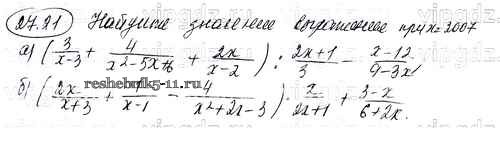 27.21 Найдите значение выражения при x=2007
а) (3/(x-3) + 4/(x²-5x+6) + 2x/(x-2)) : (2x+1)/3 - (x-12)/(9-3x)
б) (2x/(x+3) + 1/(x-1) - 4/(x²+2x-3)) · x/(2x+1) + (3-x)/(6+2x).
reshebnik5-11.ru